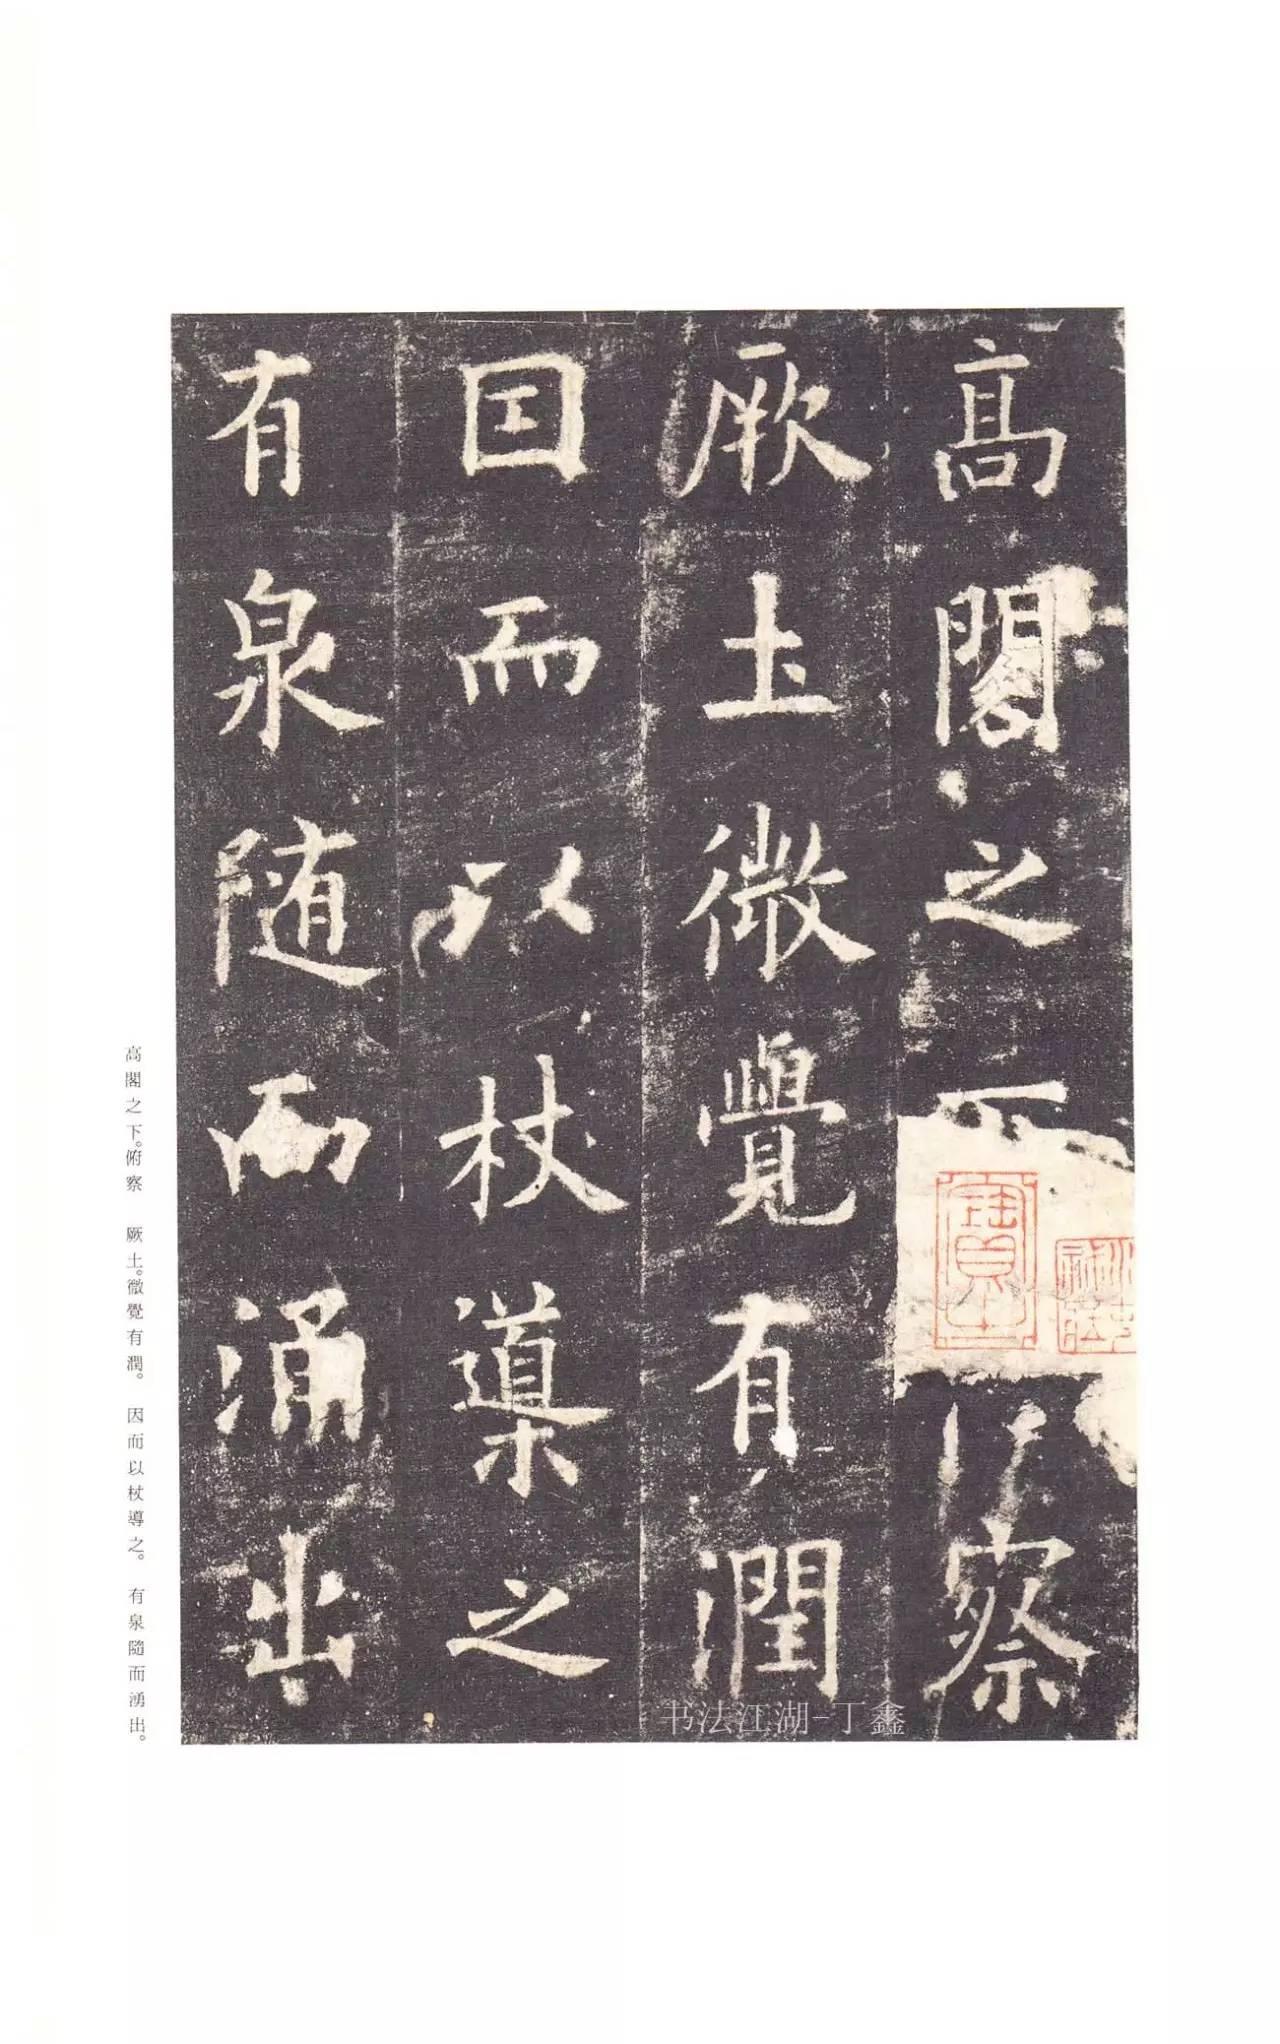 高閣之下[俯]察
厥土微覺有潤
因而以杖導之
有泉随而涌出
高閣之下。俯察 厥土。微覺有潤。 因而以杖導之。 有泉隨而湧出。
书法江湖-丁鑫